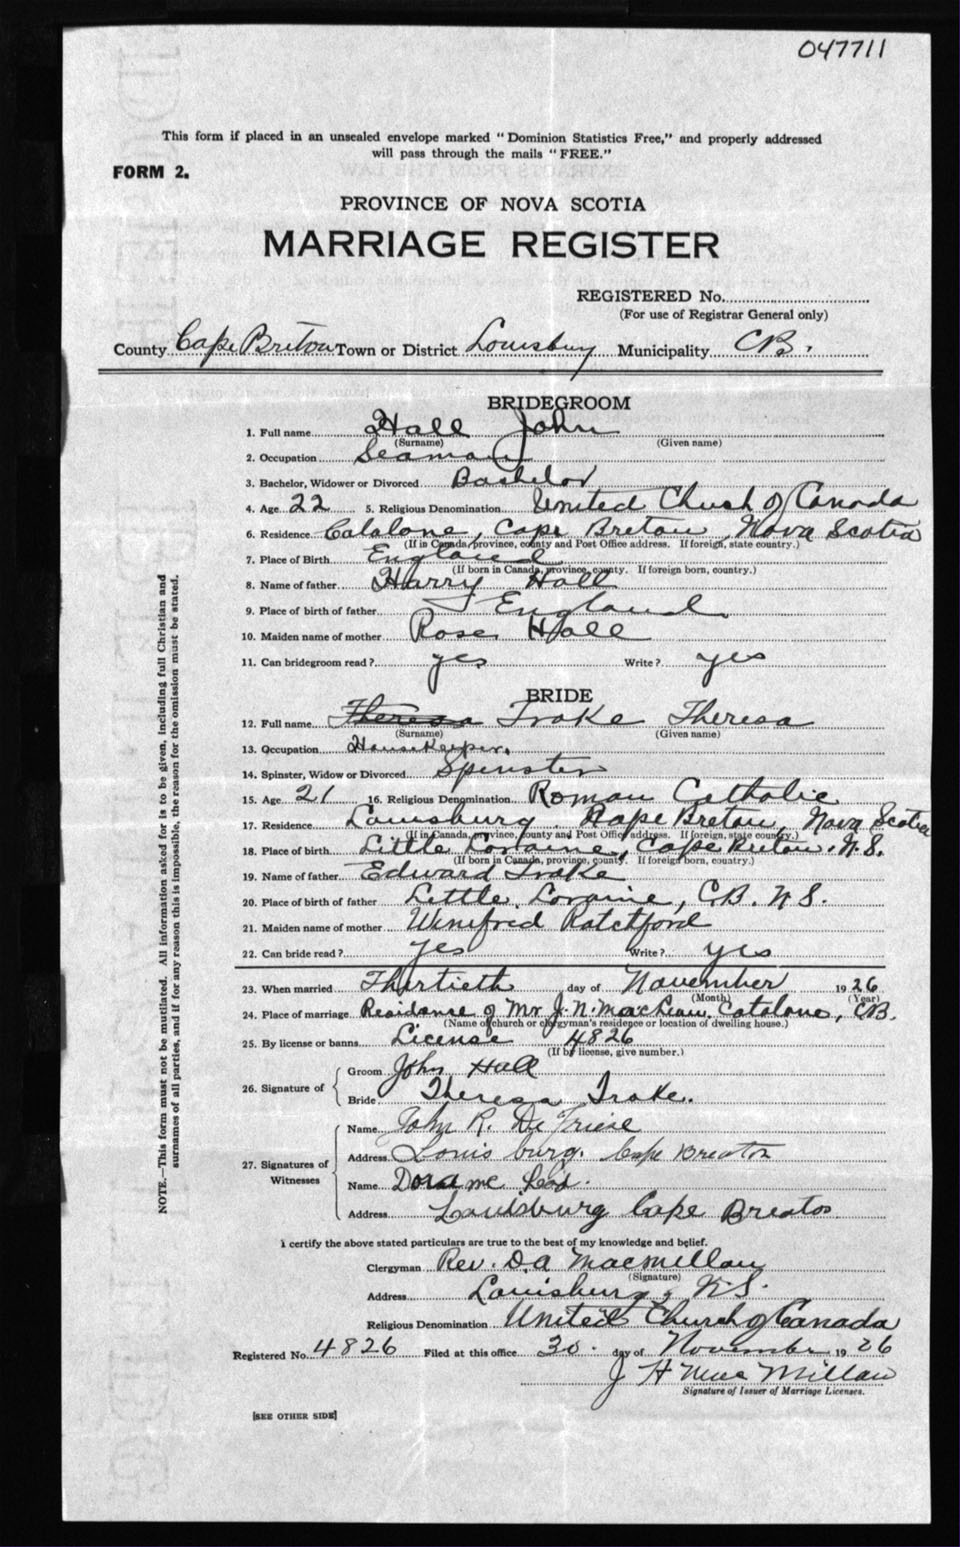 047711
This form if placed in an unsealed envelope marked "Dominion Statistics Free," and properly addressed
will pass through the mails "FREE."
FORM 2.
PROVINCE OF NOVA SCOTIA
MARRIAGE REGISTER
REGISTERED No.
(For use of Registrar General only)
County Cape Breton Town or District Louisburg Municipality CB.
BRIDEGROOM
1. Full name Hall John
(Surname) (Given name)
2. Occupation Seaman
3. Bachelor, Widower or Divorced Bachelor
4. Age 22 5. Religious Denomination United Church of Canada
6. Residence Catalone, Cape Breton, Nova Scotia
(If in Canada, province, county and Post Office address. If foreign, state country.)
7. Place of Birth England
(If born in Canada, province, county. If foreign born, country.)
8. Name of father Harry Hall
9. Place of birth of father England
10. Maiden name of mother Rose Hall
11. Can bridegroom read? yes Write? yes
BRIDE
12. Full name Theresa Trake Theresa
(Surname) (Given name)
13. Occupation Housekeeper.
14. Spinster, Widow or Divorced Spinster
15. Age 21 16. Religious Denomination Roman Catholic
17. Residence Louisburg Cape Breton, Nova Scotia
(If in Canada, province, county and Post Office address. If foreign, state country.)
18. Place of birth Little Lorraine, Cape Breton. N.S.
(If born in Canada, province, county. If foreign born, country.)
19. Name of father Edward Trake
20. Place of birth of father Little Loraine, C.B. N S.
21. Maiden name of mother Winifred Ratchford
22. Can bride read? yes Write? yes
23. When married Thirtieth day of November 1926
(Month) (Year)
24. Place of marriage Residence of Mr J. N. MacLean, Catalone, CB.
(Name of church or clergyman's residence or location of dwelling house.)
25. By license or banns License 4826
(If by license, give number.)
26. Signature of
Groom John Hall
Bride Theresa Trake.
27. Signatures of Witnesses
Name John R. De
Address Louis burg. Cape Breaton
Name Dora Mc
Address Louisburg Cape Breaton
I certify the above stated particulars are true to the best of my knowledge and belief.
Clergyman Rev. D.A Macmillan
(Signature)
Address Louisburg, N.S.
Religious Denomination United Church of Canada
Registered No. 4826 Filed at this office 30. day of November 1926
J H Mac Millan
Signature of Issuer of Marriage Licenses.
[SEE OTHER SIDE]
NOTE.—This form must not be mutilated. All information asked for is to be given, including full Christian and
surnames of all parties, and if for any reason this is impossible, the reason for the omission must be stated.